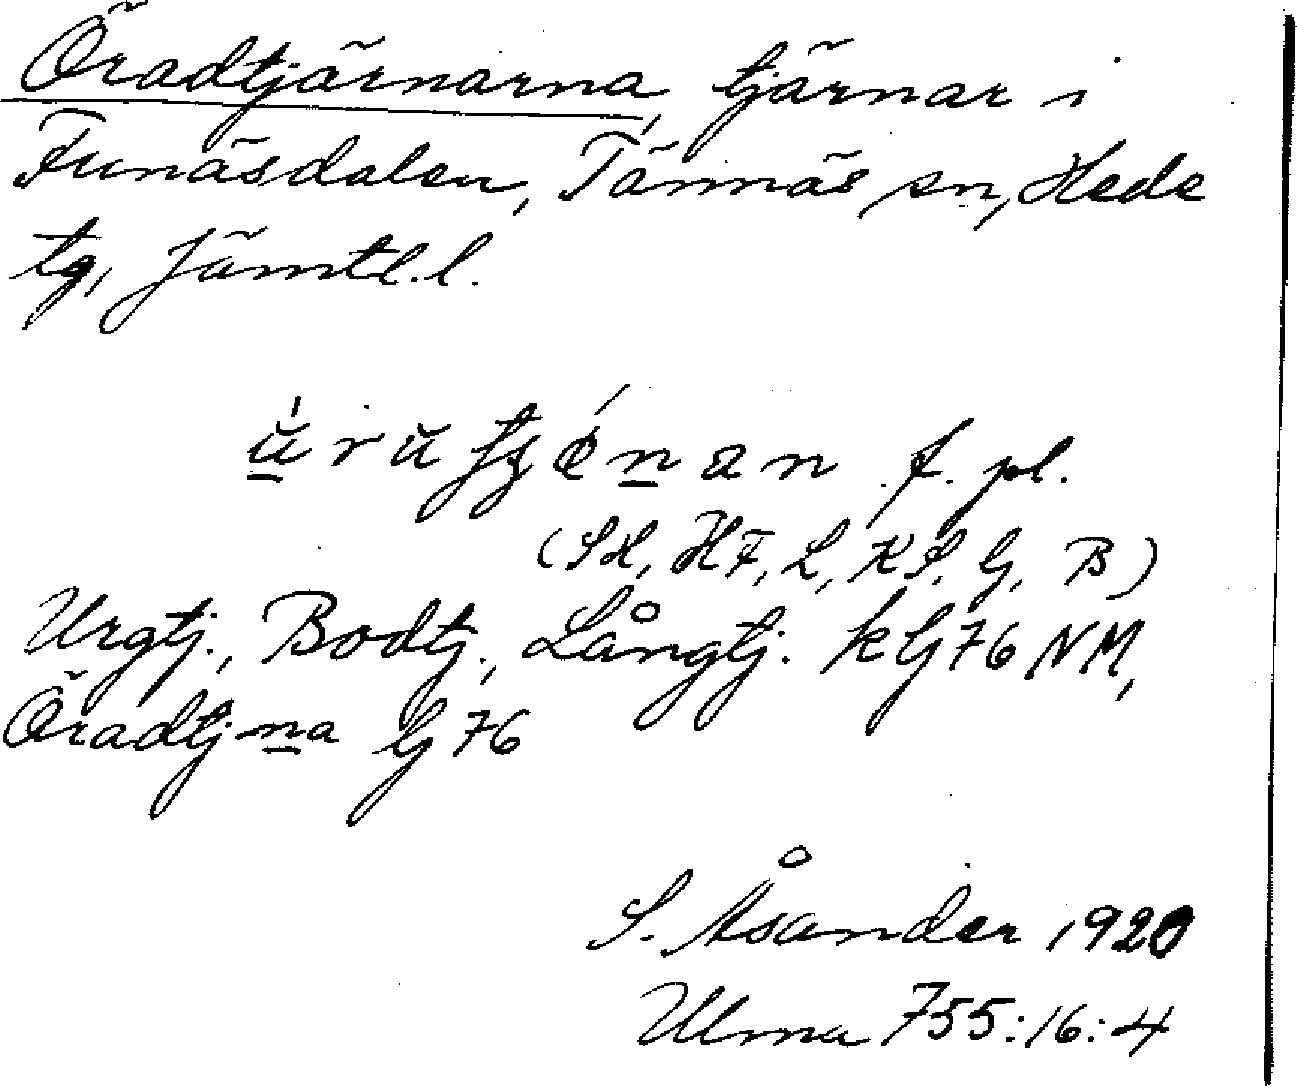 Öradtjärnarna, tjärnar i
Funäsdalen, Tännäs sn, Hede
tg, Jämtl.l.
f. pl.
(SH, HF, L, KS, G, B)
Urgtj., Bodtj., Långtj. k G76 NM,
Öradtjna G 76
S. Åsander 1920
Ulma 755:16:4